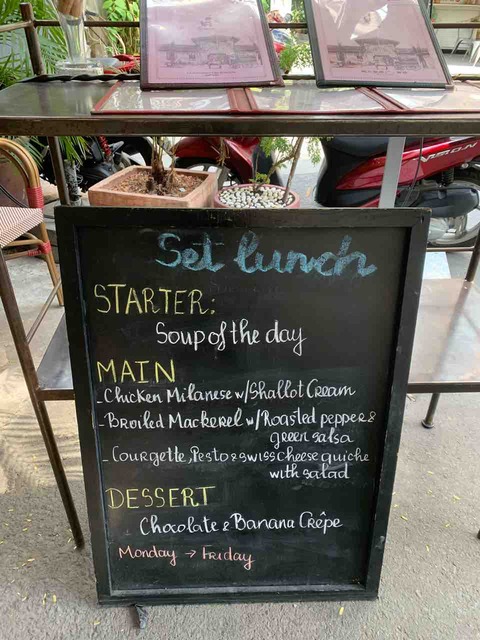 Set lunch
STARTER:
Soup of the day
MAIN
- Chicken Milanese w/Shallot Cream
- Broiled Mackerel w/Roasted pepper &
green salsa
- Courgette, Pesto & swiss cheese quiche
with salad
DESSERT
Chocolate & Banana Crêpe
Monday → Friday